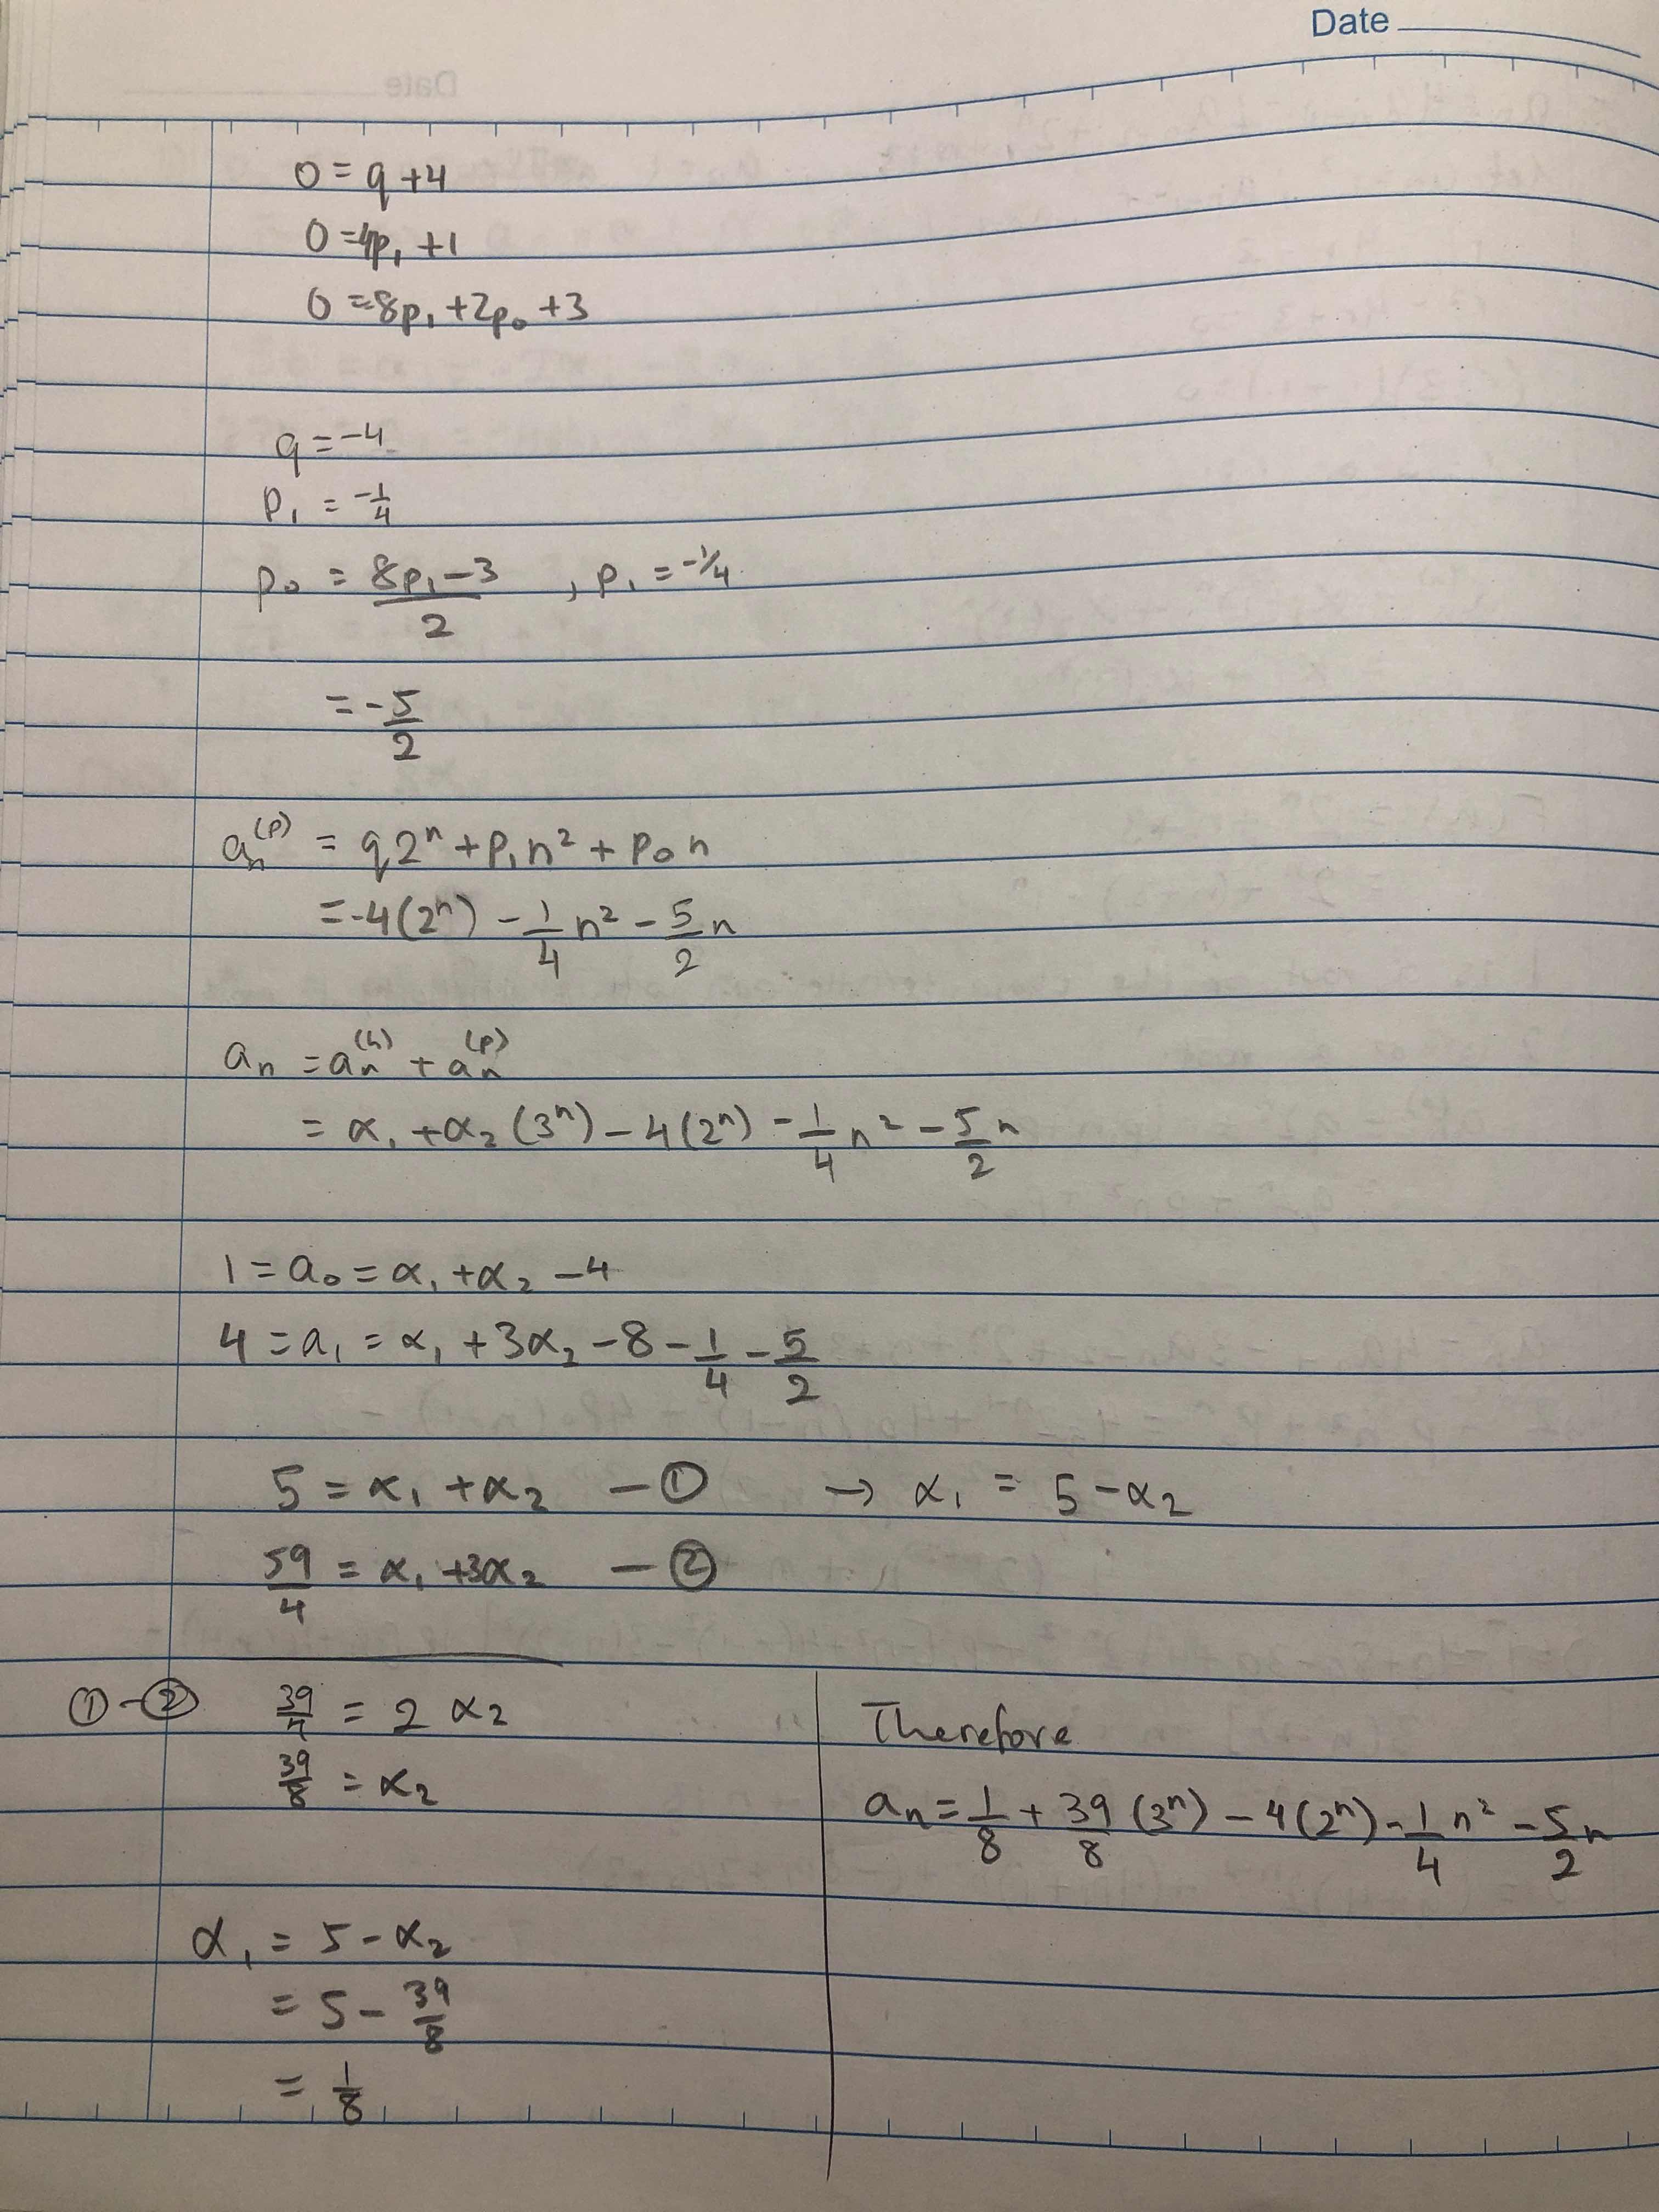 Date
0 = q + 4
0 = 4p₁ + 1
0 = 8p₁ + 2p₀ + 3
q = -4
p₁ = -1/4
p₀ = (8p₁ - 3)/2 , p₁ = -1/4
= -5/2
aₙ⁽ᵖ⁾ = q2ⁿ + p₁n² + p₀n
= -4(2ⁿ) - 1/4 n² - 5/2 n
aₙ = aₙ⁽ʰ⁾ + aₙ⁽ᵖ⁾
= α₁ + α₂(3ⁿ) - 4(2ⁿ) - 1/4 n² - 5/2 n
1 = a₀ = α₁ + α₂ - 4
4 = a₁ = α₁ + 3α₂ - 8 - 1/4 - 5/2
5 = α₁ + α₂ — ① → α₁ = 5 - α₂
59/4 = α₁ + 3α₂ — ②
① - ② 39/4 = 2 α₂
39/8 = α₂
α₁ = 5 - α₂
= 5 - 39/8
= 1/8
Therefore
aₙ = 1/8 + 39/8 (3ⁿ) - 4(2ⁿ) - 1/4 n² - 5/2 n